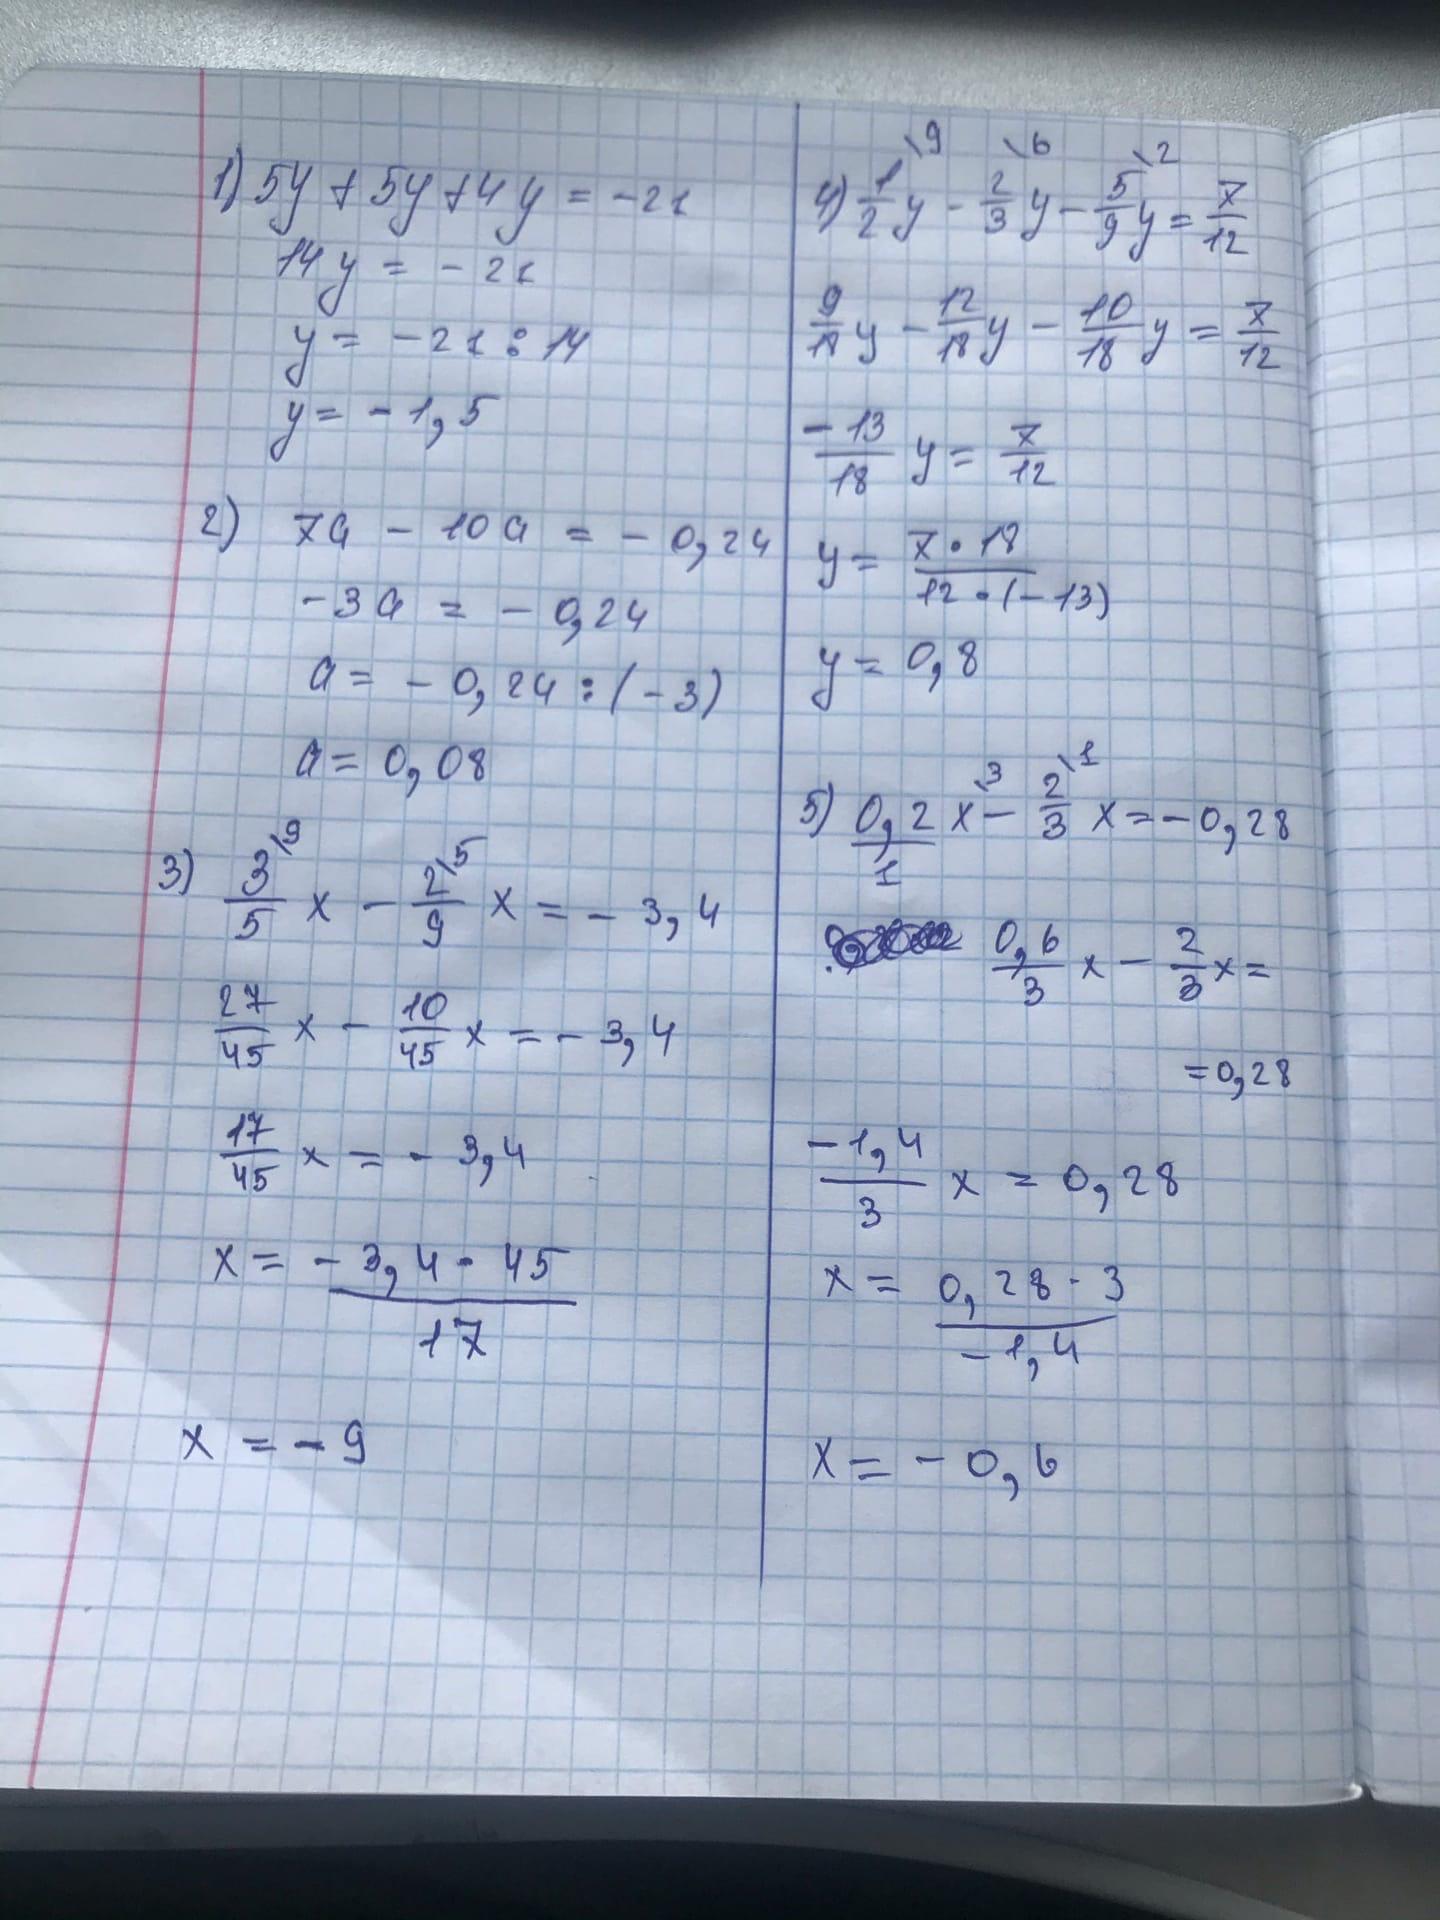 1) 5y + 5y + 4y = -21
14y = -21
y = -21 : 14
y = -1,5
2) 7a - 10a = -0,24
-3a = -0,24
a = -0,24 : (-3)
a = 0,08
3) 3\9/5 x - 2\5/9 x = -3,4
27/45 x - 10/45 x = -3,4
17/45 x = -3,4
x = -3,4 · 45 / 17
x = -9
4) 1\9/2 y - 2\6/3 y - 5\2/9 y = 7/12
9/18 y - 12/18 y - 10/18 y = 7/12
-13/18 y = 7/12
y = 7 · 18 / 12 · (-13)
y = 0,8
5) 0,2/1 x\3 - 2\1/3 x = -0,28
0,6/3 x - 2/3 x =
= 0,28
-1,4/3 x = 0,28
x = 0,28 · 3 / -1,4
x = -0,6